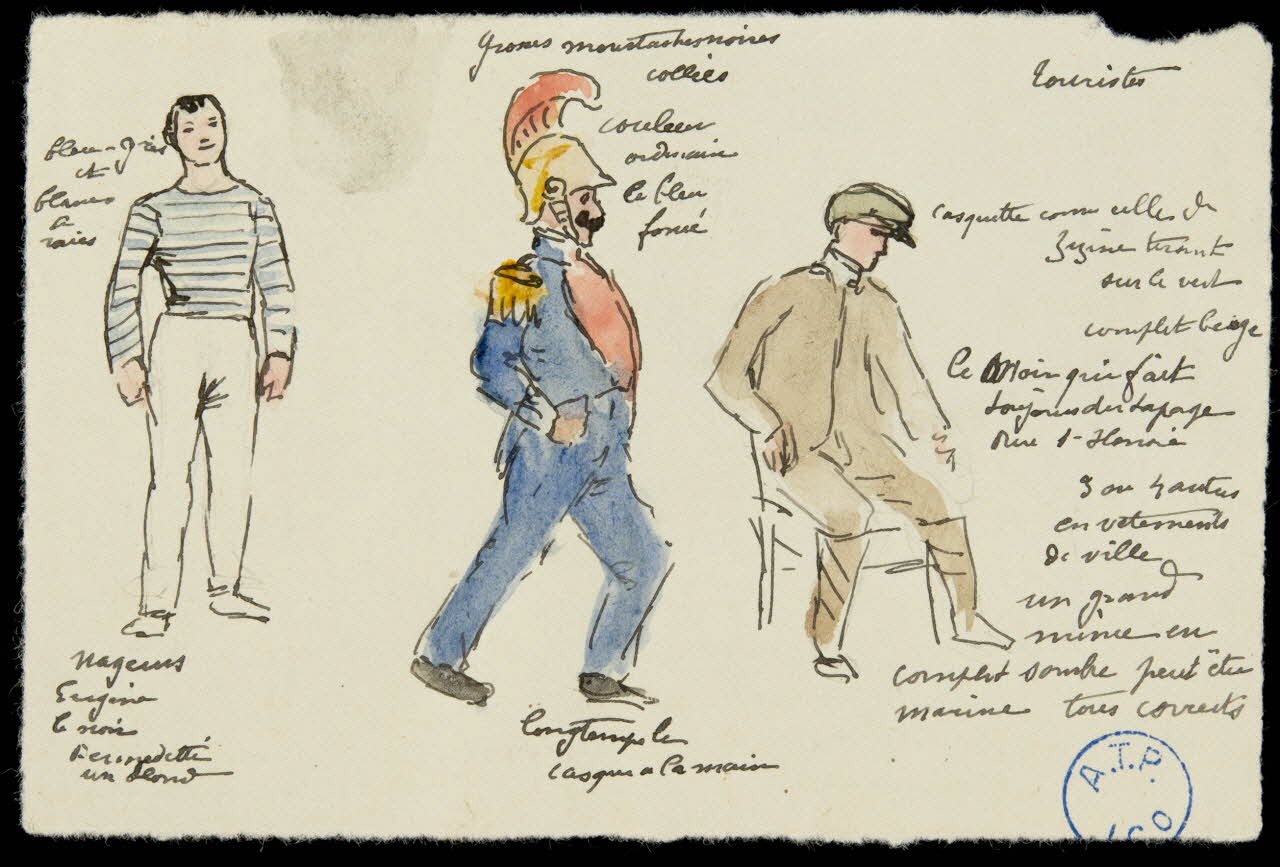 bleu-gris
et
blancs
à
raies
nageurs
Eugène
le noir
un blond
grosses moustaches noires
collées
couleur
ordinaire
le bleu
foncé
longtemps le
casque a la main
touristes
casquette comme celles de
tirant
sur le vert
complet beige
le Noir qui fait
toujours du tapage
Rue St-Honoré
3 ou 4 autres
en vetements
de ville
un grand
mince en
complet sombre peut être
marine tous corrects
A.T.P.